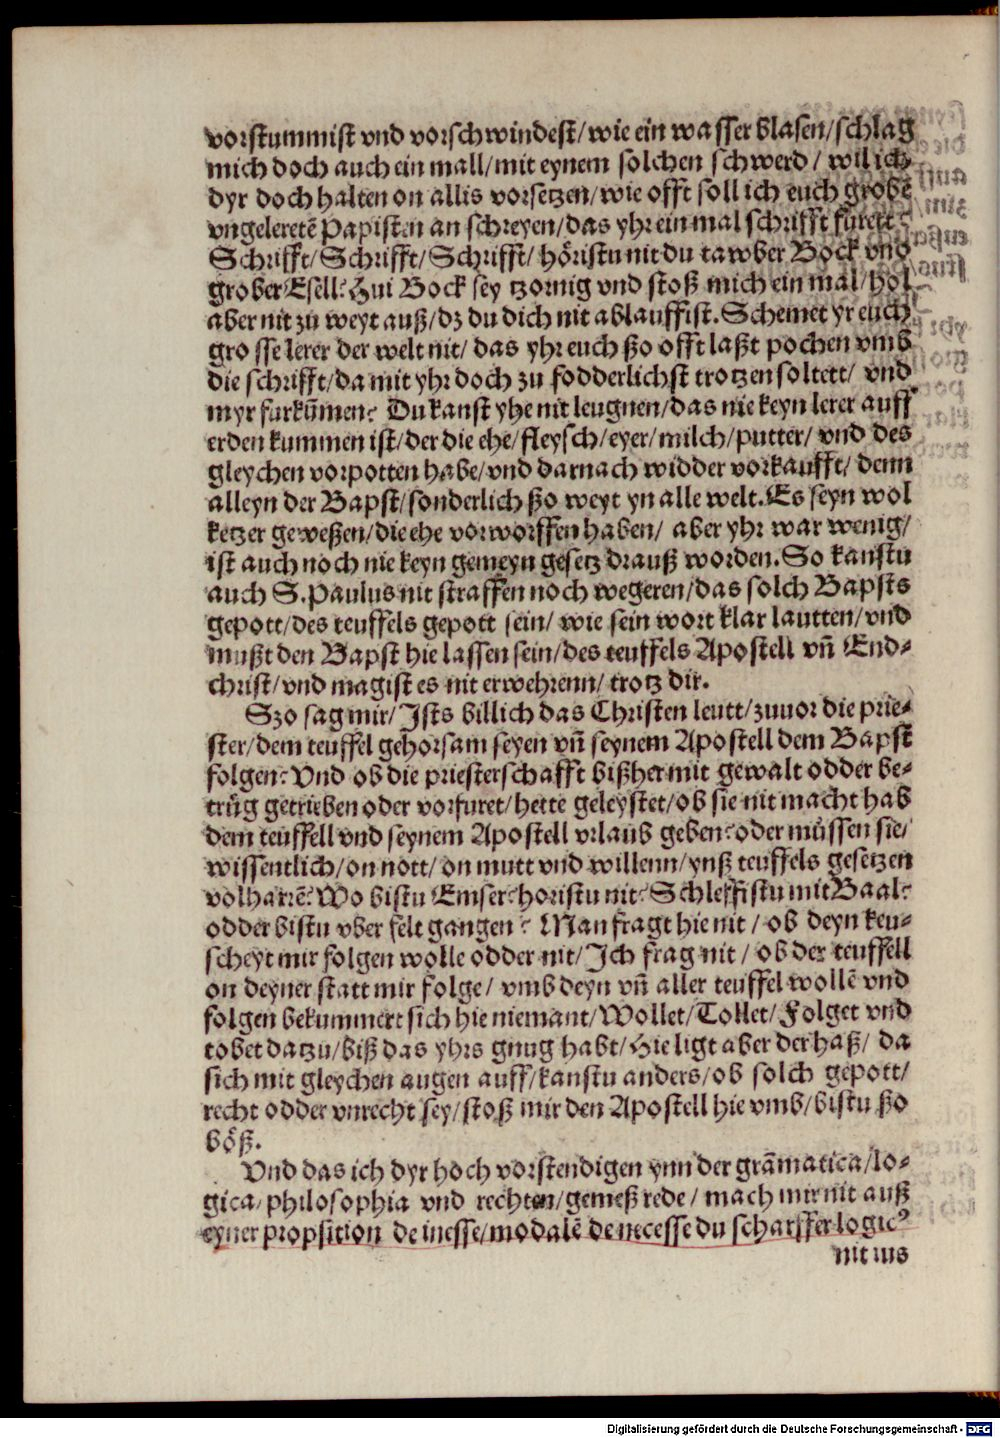 vorstummist vnd vorschwindest/wie ein wasser blasen/schlag
mich doch auch ein mall/mit eynem solchen schwerd/ wil ich
dyr doch halten on allis vorsetzen/wie offt soll ich euch grobẽ
vngeleretẽ Papisten an schreyen/das yhr ein mal schrifft furett
Schrifft/Schrifft/Schrifft/ hoͤristu nit du tawber Bock vnd
grober Esell? Hui Bock sey tzornig vnd stoß mich ein mal/ hol
aber nit zu weyt auß/dz du dich nit ablauffist. Schemet yr euch
grosse lerer der welt nit/ das yhr euch ßo offt laßt pochen vmb
die schrifft/da mit yhr doch zu fodderlichst trotzen soltett/ vnd
myr furkũmen? Du kanst yhe nit leugnen/das nie keyn lerer auff
erden kummen ist/der die ehe/fleysch/eyer/milch/putter/ vnd des
gleychen vorpotten habe/vnd darnach widder vorkaufft/ denn
alleyn der Bapst/sonderlich ßo weyt yn alle welt. Es seyn wol
ketzer geweßen/die ehe vorworffen haben/ aber yhr war wenig/
ist auch noch nie keyn gemeyn gesetz drauß worden. So kanstu
auch S. Paulus nit straffen noch wegeren/das solch Bapsts
gepott/des teuffels gepott sein/ wie sein wort klar lautten/vnd
mußt den Bapst hie lassen sein/des teuffels Apostell vñ End-
christ/vnd magist es nit erwehrenn/ trotz dir.
Szo sag mir/Ists billich das Christen leutt/zuuor die prie-
ster/dem teuffel gehorsam seyen vñ seynem Apostell dem Bapst
folgen? Vnd ob die priesterschafft bißher mit gewalt odder be-
truͤg getrieben oder vorfuret/hette geleystet/ob sie nit macht hab
dem teuffell vnd seynem Apostell vrlaub geben? oder muͤssen sie/
wissentlich/on nott/on mutt vnd willenn/ynß teuffels gesetzen
volharrẽ? Wo bistu Emser? horistu nit? Schleffistu mit Baal?
odder bistu vber felt gangen? Man fragt hie nit/ ob deyn keu-
scheyt mir folgen wolle odder nit/Ich frag nit/ ob der teuffell
on deyner statt mir folge/ vmb deyn vñ aller teuffel wollẽ vnd
folgen bekummert sich hie niemant/Wollet/Tollet/Folget vnd
tobet datzu/biß das yhrs gnug habt/Hie ligt aber der haß/ da
sich mit gleychen augen auff/kanstu anders/ob solch gepott/
recht odder vnrecht sey/stoß mir den Apostell hie vmb/bistu ßo
boͤß.
Vnd das ich dyr hoch vorstendigen ynn der grãmatica/lo-
gica/philosophia vnd rechten/gemeß rede/ mach mir nit auß
eyner propsition de inesse/modalẽ de necesse du scharffer logicꝰ
nit ins
Digitalisierung gefördert durch die Deutsche Forschungsgemeinschaft - DFG